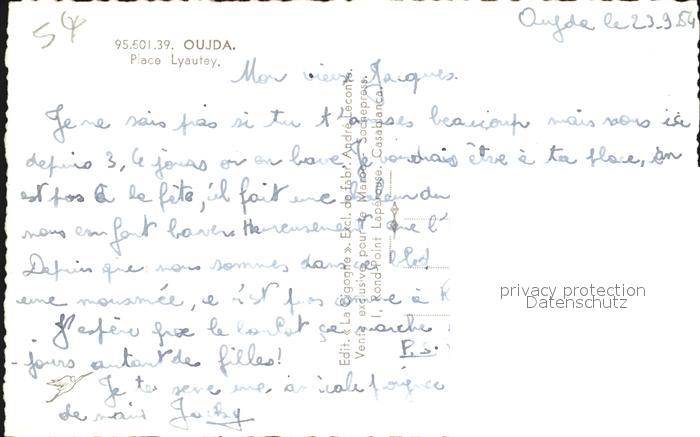 54
Oujda le 23.9.54
95.501.39. OUJDA.
Place Lyautey.
Mon vieux Jacques.
Je ne sais pas si tu t'amuses beaucoup mais nous ici
depuis 3, 4 jours on en bave Je voudrais être à ta place, on
est pas à la fête, il fait une du
nous en font baver Heureusement que l'
Depuis que nous sommes dans ce bled
une mousmée, ce n'est pas comme à
J'espère que le ça marche
jours autant de filles!
P.S.
Je te serre une amicale poignée
de main Jacky
Edit. « La Cigogne ». Excl. de fabr. André Leconte.
Vente exclusive pour le Maroc: Sochepress.
1, Rond-Point Lapérouse, Casablanca.
privacy protection
Datenschutz